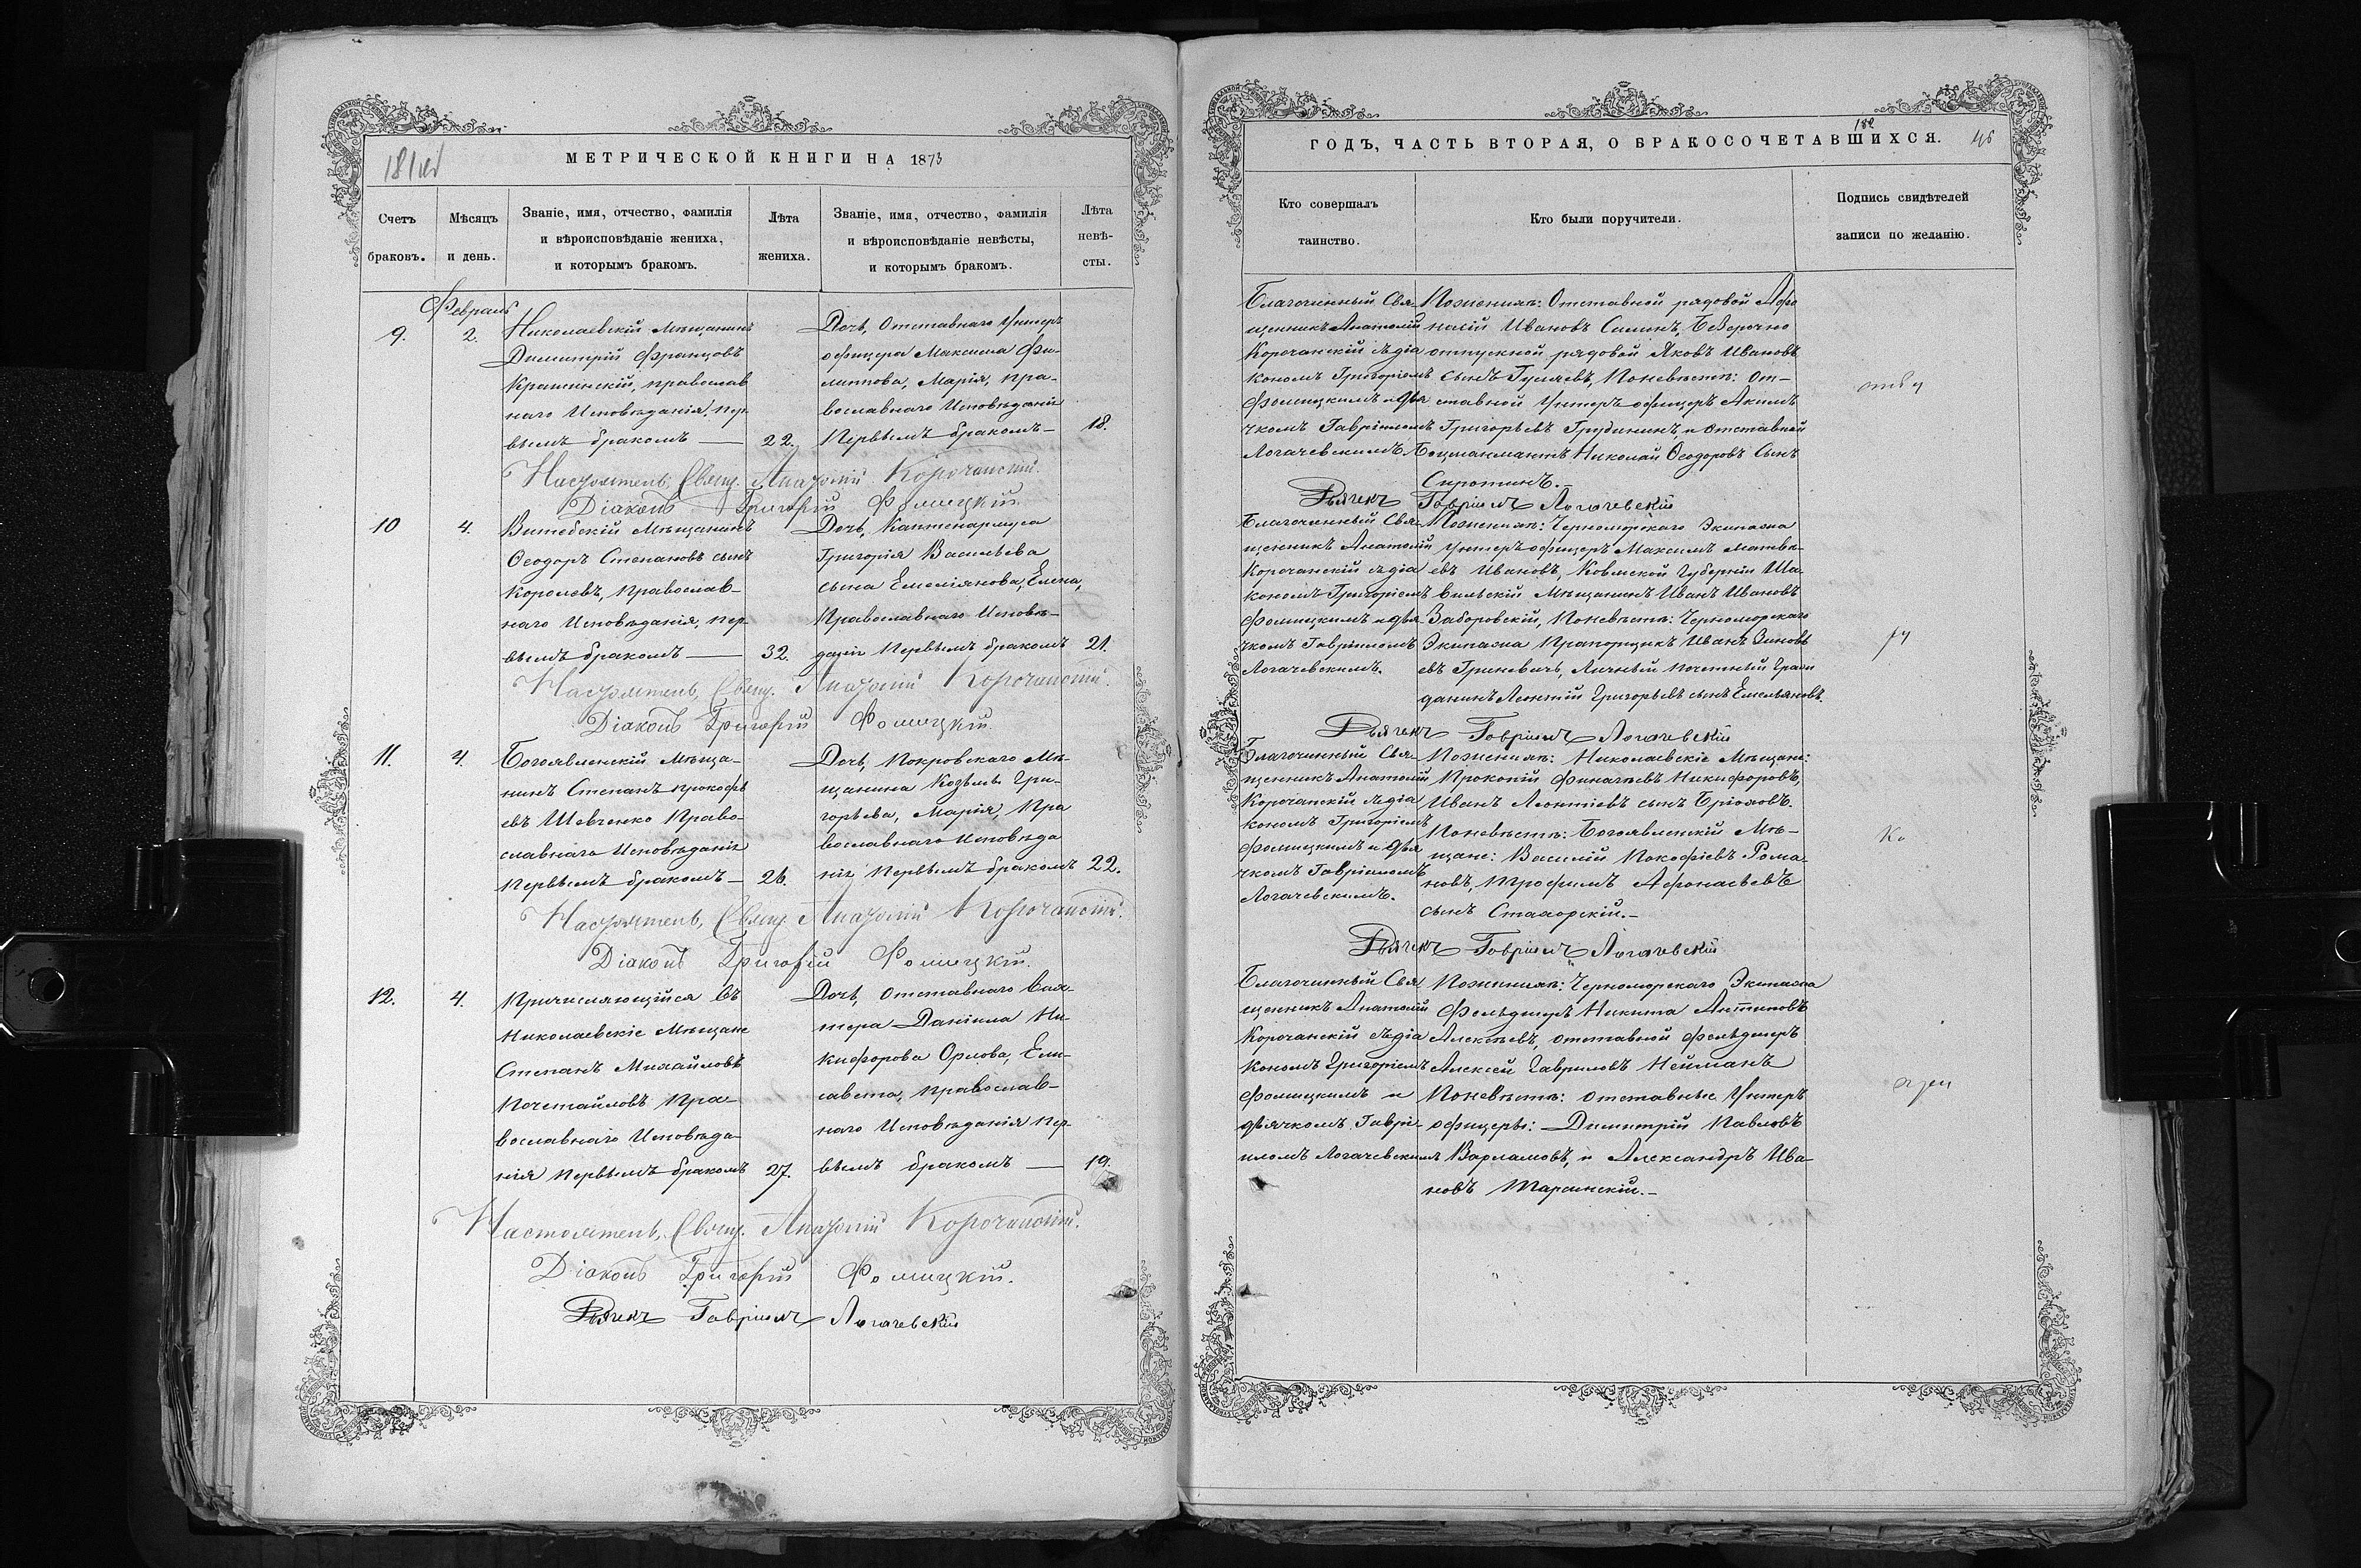 МЕТРИЧЕСКОЙ КНИГИ НА 1873
Счетъ браковъ.
Мѣсяцъ и день.
Званіе, имя, отчество, фамилія
и вѣроисповѣданіе жениха,
и которымъ бракомъ.
Лѣта
жениха.
Званіе, имя, отчество, фамилія
и вѣроисповѣданіе невѣсты,
и которымъ бракомъ.
Лѣта
невѣ-
сты.
Февраль
9.
2.
Николаевскій Мѣщанинъ
Димитрій Францовъ
Крашинскій, православ
наго Исповѣданія, пер-
вымъ бракомъ —
22.
Дочь, Отставнаго Унтеръ
офицера Максима Фи-
липпова, Марія, Пра-
вославнаго Исповѣданія
Первымъ бракомъ —
18.
Настоятель, Свящ. Анатолій Корочанскій.
Діаконъ Григорій Фомицкій
10
4.
Витебскій Мѣщанинъ
Ѳеодоръ Степановъ сынъ
Королевъ, Православ-
наго Исповѣданія, пер-
вымъ бракомъ —
32.
Дочь, Каптенармуса
Григорія Васильева
сына Емеліянова, Елена,
Православнаго Исповѣ-
данія Первымъ бракомъ
21.
Настоятель, Свящ. Анатолій Корочанскій.
Діаконъ Григорій Фомицкій
11.
4.
Богоявленскій Мѣща-
нинъ Степанъ Прокофь
евъ Шевченко Право-
славнаго Исповѣданія
Первымъ бракомъ —
26.
Дочь, Покровскаго Мѣ-
щанина Козьмы Гри-
горьева, Марія, Пра
вославнаго Исповѣда
нія Первымъ бракомъ
22.
Настоятель, Свящ. Анатолій Корочанскій.
Діаконъ Григорій Фомицкій.
12.
4.
Причисляющійся въ
Николаевскіе Мѣщане
Степанъ Михайловъ
Почетайловъ Пра-
вославнаго Исповѣда-
нія Первымъ бракомъ
27.
Дочь, Отставнаго Вах-
тера Даніила Ни-
кифорова Орлова, Ели-
савета, Православ-
наго Исповѣданія пер-
вымъ бракомъ —
19.
Настоятель, Свящ. Анатолій Корочанскій.
Діаконъ Григорій Фомицкій.
Дьячекъ Гавріилъ Логачевскій
ГОДЪ, ЧАСТЬ ВТОРАЯ, О БРАКОСОЧЕТАВШИХСЯ.
182
46
Кто совершалъ
таинство.
Кто были поручители.
Подпись свидѣтелей
записи по желанію.
Благочинный Свя-
щенникъ Анатолій
Корочанскій съ діа
кономъ Григоріемъ
Фомицкимъ и дья
чкомъ Гавріиломъ
Логачевскимъ.
Поженихѣ: Отставной рядовой Афо
насій Ивановъ Симонъ, Безсрочно
отпускной рядовой Яковъ Ивановъ
сынъ Гуляевъ, Поневѣстѣ: От-
ставной Унтеръ офицеръ Акимъ
Григорьевъ Грудининъ, и Отставной
Боцманматъ Николай Ѳеодоровъ Сынъ
Сиротинъ.-
Дьячекъ Гавріилъ Логачевскій
Благочинный Свя-
щенникъ Анатолій
Корочанскій съ діа
кономъ Григоріемъ
Фомицкимъ и дья-
чкомъ Гавріиломъ
Логачевскимъ.
Поженихѣ: Черноморскаго Экипажа
Унтеръ офицеръ Максимъ Матвѣ-
евъ Ивановъ, Ковенской Губерніи Ша-
вильскій Мѣщанинъ Иванъ Ивановъ
Заборовскій, Поневѣстѣ: Черноморскаго
Экипажа Прапорщикъ Иванъ Зиновь
евъ Гриневичъ, Личный почетный Граж
данинъ Леонтій Григорьевъ сынъ Емельяновъ.
Дьячекъ Гавріилъ Логачевскій
Благочинный Свя-
щенникъ Анатолій
Корочанскій съ діа
кономъ Григоріемъ
Фомицкимъ и дья
чкомъ Гавріиломъ
Логачевскимъ.
Поженихѣ: Николаевскіе Мѣщане:
Прокопій Финагѣевъ Никифоровъ,
Иванъ Леонтіевъ сынъ Бріоховъ.
Поневѣстѣ: Богоявленскій Мѣ-
щане: Василій Покофіевъ Рома-
новъ, Трофимъ Афонасьевъ
сынъ Стахорскій.-
Дьячекъ Гавріилъ Логачевскій
Благочинный Свя
щенникъ Анатолій
Корочанскій съ діа
кономъ Григоріемъ
Фомицкимъ и
дьячкомъ Гаврі-
иломъ Логачевскимъ
Поженихѣ: Черноморскаго Экипажа
Фельдшеръ Никита Антиповъ
Алексѣевъ, отставной фельдшеръ
Алексѣй Гавриловъ Нейманъ
Поневѣстѣ: отставные Унтеръ
офицеры: Димитрій Павловъ
Варламовъ, и Александръ Ива-
новъ Таранскій.-